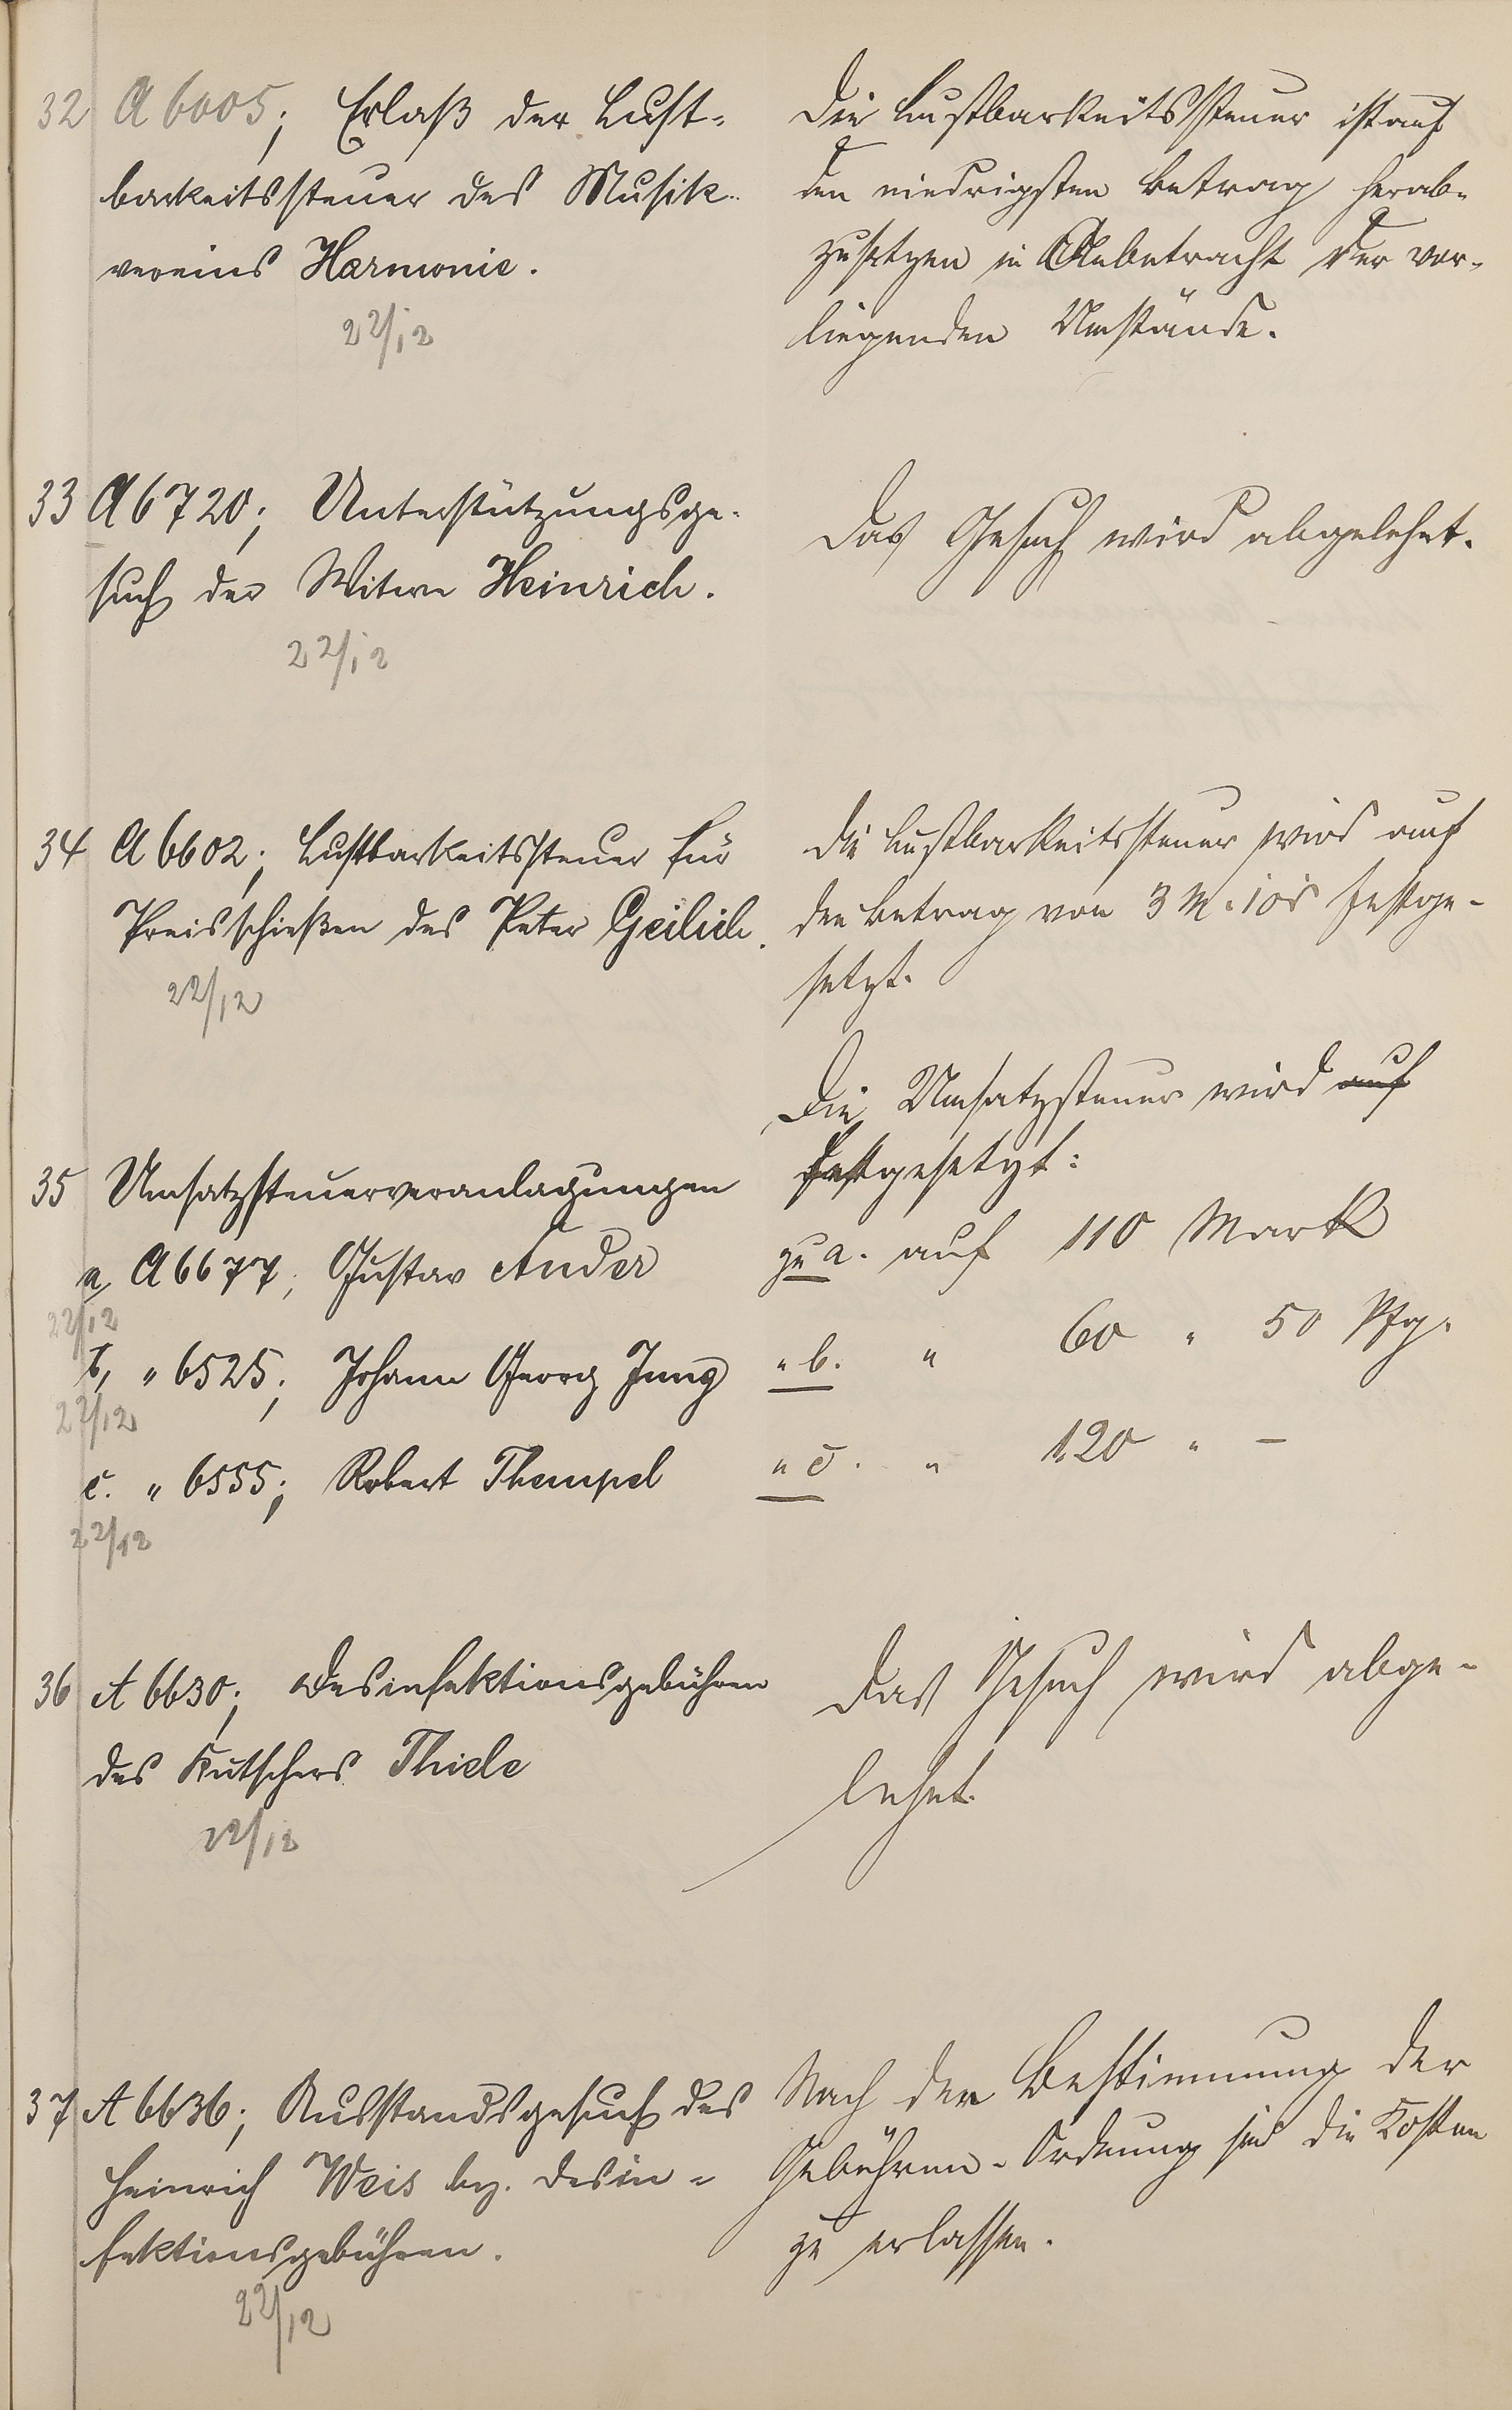 32 A 6005; Erlaß der Lust-
barkeitssteuer des Musik-
vereins Harmonie.
22/12
Die Lustbarkeitssteuer ist auf
den niedrigsten Betrag herab-
zusetzen in Anbetracht der vor-
liegenden Umstände.
33 A 6720; Unterstützungsge-
such der Witwe Heinrich.
22/12
Das Gesuch wird abgelehnt.
34 A 6602; Lustbarkeitssteuer für
Preisschießen des Peter Geilich.
22/12
Die Lustbarkeitssteuer wird auf
den Betrag von 3 M. festge-
setzt.
35 Umsatzsteuerveranlagungen
a, A 6677; Gustav Ander
22/12
b, " 6525; Johann Georg Jung
22/12
c. " 6555; Robert Thempel
22/12
Die Umsatzsteuer wird auf
festgesetzt:
zu a. auf 110 Mark
" b. " 60 " 50 Pfg.
" c. " 120 " —
36 A 6630; Desinfektionsgebühren
des Kutschers Thiele
22/12
Das Gesuch wird abge-
lehnt.
37 A 6636; Ausstandsgesuch des
Heinrich Weis bz. Desin-
fektionsgebühren.
22/12
Nach der Bestimmung der
Gebühren-Ordnung sind die Kosten
zu erlassen.